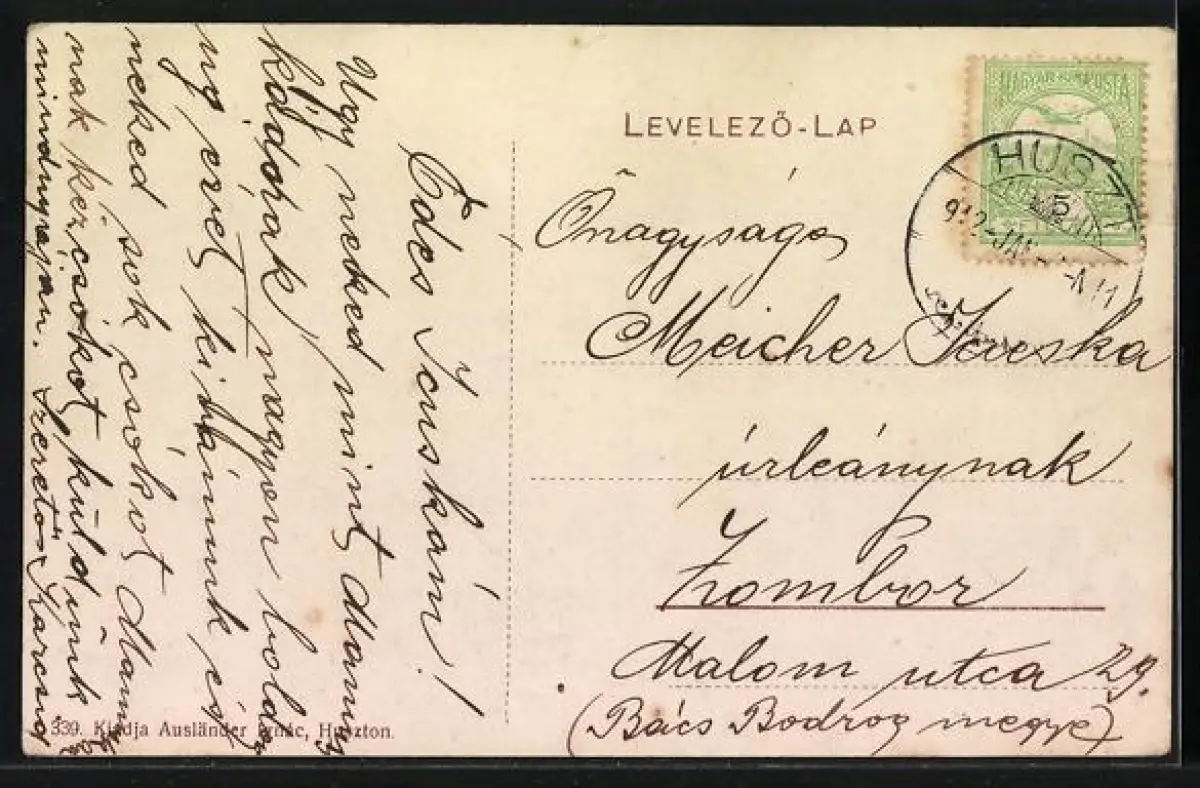 LEVELEZŐ-LAP
MAGYAR KIR. POSTA
HUSZT
912 JAN
Édes Icuskám!
Ugy neked mint Mamus
káddnak, nagyon boldog
uj évet kivánunk és
neked sok csókot Mamá
nak kézcsókot küldünk
mindnyajan. Szerető Karcsid
Őnagysága
Meicher Icuska
úrleánynak
Zombor
Malom utca 29.
(Bács Bodrog megye)
339. Kiadja Ausländer Ignác, Huszton.